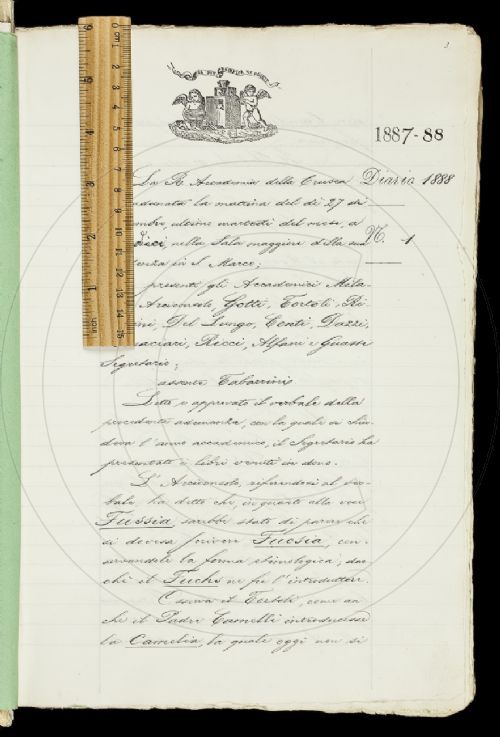 3
1887-88
Diario 1888
N. 1
La R. Accademia della Crusca
adunata la mattina del dì 27 di
mbre, ultimo martedì del mese, a
dici, nella Sala maggiore della sua
in S. Marco;
presenti gli Accademici
Arciconsolo, Gotti, Tortoli, Ri-
ini, Del Lungo, Conti, Dazzi,
naciari, Ricci, Alfani e Guasti
Segretario;
assente Tabarrini
Letto e approvato il verbale della
precedente adunanza, con la quale si chiu-
deva l'anno accademico, il Segretario ha
presentato i libri venuti in dono.
L'Arciconsolo, riferendosi al ver-
bale, ha detto che, in quanto alla voce
Fussia, sarebbe stato di parere che
si dovesse scrivere Fucsia, con-
servandole la forma etimologica, dac-
chè il Fuchs ne fu l'introduttore.
Osserva il Tortoli, come an-
che il Padre Camelli introducesse
la Camelia, la quale oggi non si
inch
cm
1 2 3 4 5 6 7 8 9 10 11 12 13 14 15